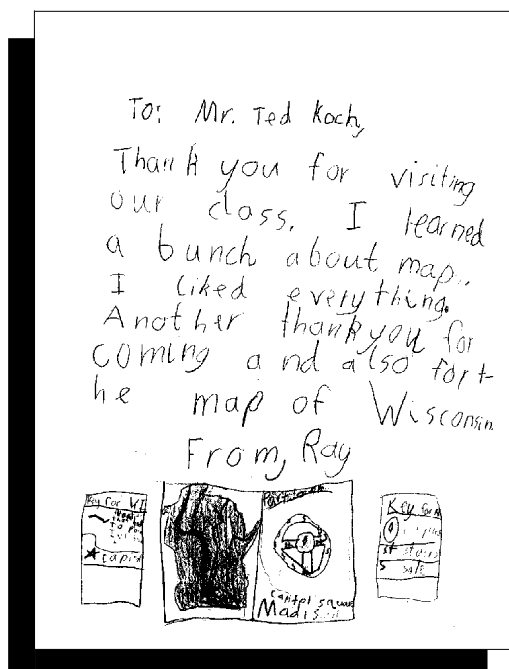 To: Mr. Ted Koch,
Thank you for visiting
our class. I learned
a bunch about map..
I liked everything.
Another thank you for
coming and also for t-
he map of Wisconsin
From, Ray
Key for WI
Key for
capitol
st stairs
s
square
Madison